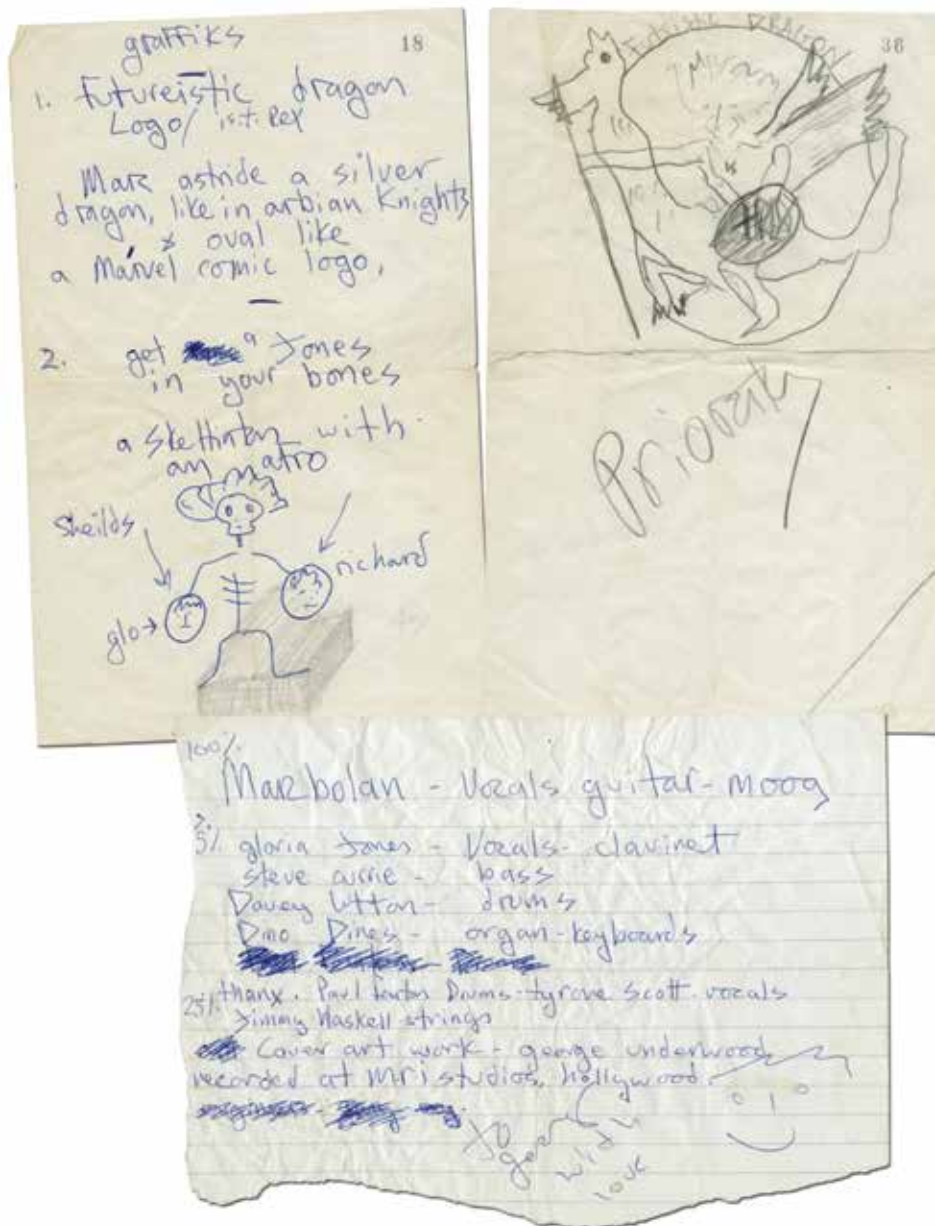 graffiks
18
1. Futureistic dragon
Logo/ is t. Rex
Marc astride a silver
dragon, like in arbian Knights
& oval like
a Marvel comic logo,
2. get a Jones
in your bones
a Skellinton with
an
Sheilds
richard
glo→
DRAGON
38
TREX
100%
Marcbolan - Vocals guitar - moog
5% gloria Jones - Vocals - clavinet
steve currie - bass
Davey lutton - drums
Dino Dines - organ - keyboards
25% thanx. Paul fenton Drums - tyrone Scott - vocals
Jimmy Haskell strings
Cover art work - george underwood
recorded at mri studios, hollywood.
with
love